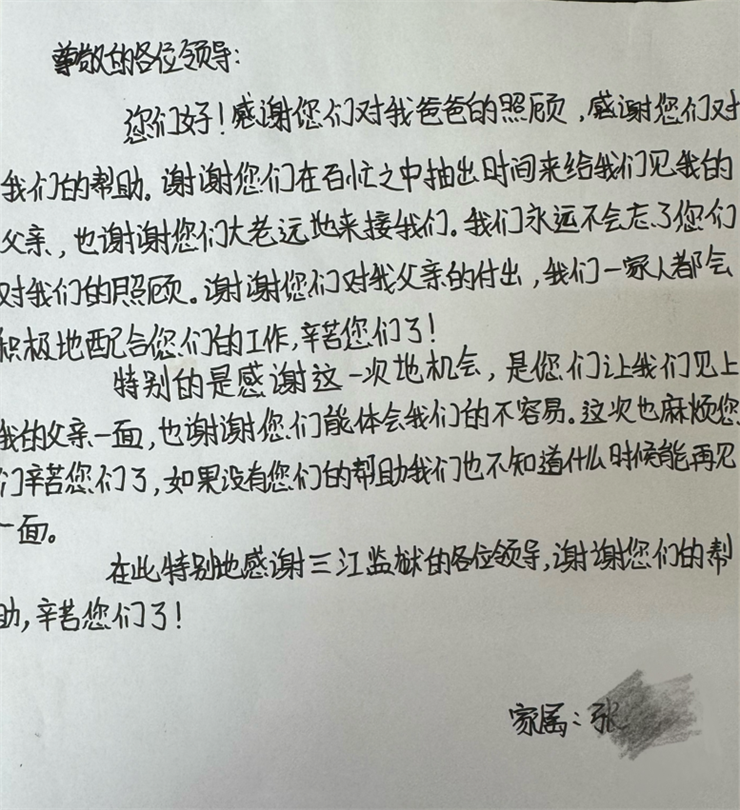 尊敬的各位领导:
您们好!感谢您们对我爸爸的照顾,感谢您们对
我们的帮助。谢谢您们在百忙之中抽出时间来给我们见我的
父亲,也谢谢您们大老远地来接我们。我们永远不会忘了您们
对我们的照顾。谢谢您们对我父亲的付出,我们一家人都会
积极地配合您们的工作,辛苦您们了!
特别的是感谢这一次地机会,是您们让我们见上
我的父亲一面,也谢谢您们能体会我们的不容易。这次也麻烦您
们辛苦您们了,如果没有您们的帮助我们也不知道什么时候能再见
一面。
在此特别地感谢三江监狱的各位领导,谢谢您们的帮
助,辛苦您们了!
家属:张